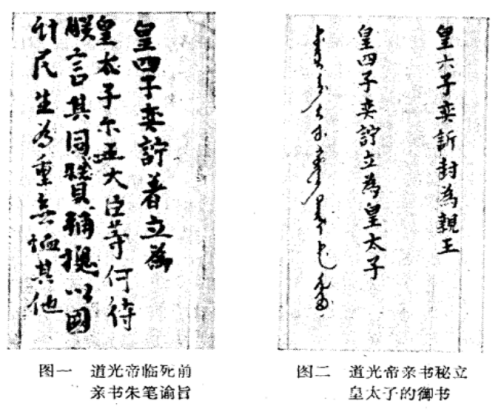 皇四子奕詝著立為
皇太子尔王大臣等何待
朕言其同心賛輔揔以國
计民生為重無恤其他
图一 道光帝临死前
亲书朱笔谕旨
皇六子奕訢封為親王
皇四子奕詝立為皇太子
图二 道光帝亲书秘立
皇太子的御书